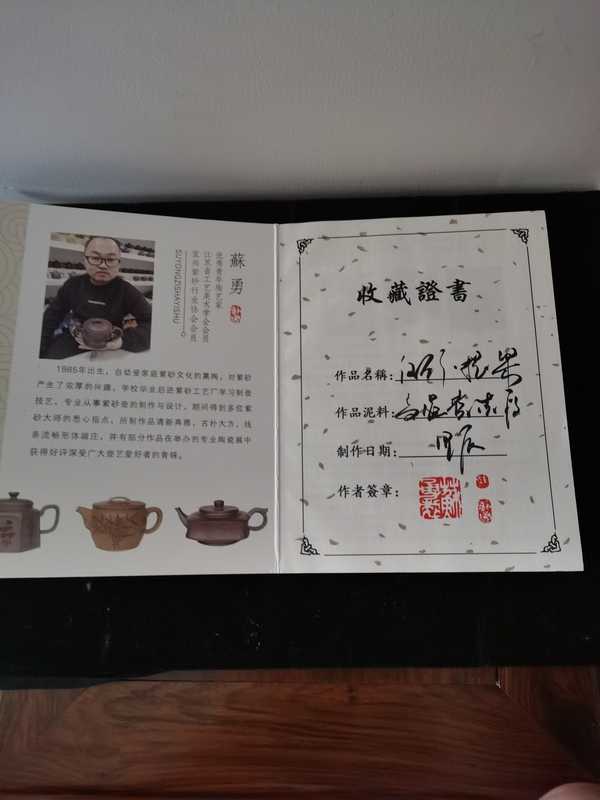 蘇勇
优秀青年陶艺家
江苏省工艺美术学会会员
宜兴紫砂行业协会会员
SUYONGZISHAYISHU
1985年出生，自动受家庭紫砂文化的熏陶，对紫砂
产生了浓厚的兴趣，学校毕业后进紫砂工艺厂学习制壶
技艺，专业从事紫砂壶的制作与设计，期间得到多位紫
砂大师的悉心指点，所制作品清新典雅，古朴大方，线
条流畅形体端庄，并有部分作品在举办的专业陶瓷展中
获得好评深受广大壶艺爱好者的青睐。
收藏證書
作品名稱：
作品泥料：
制作日期：
作者簽章：